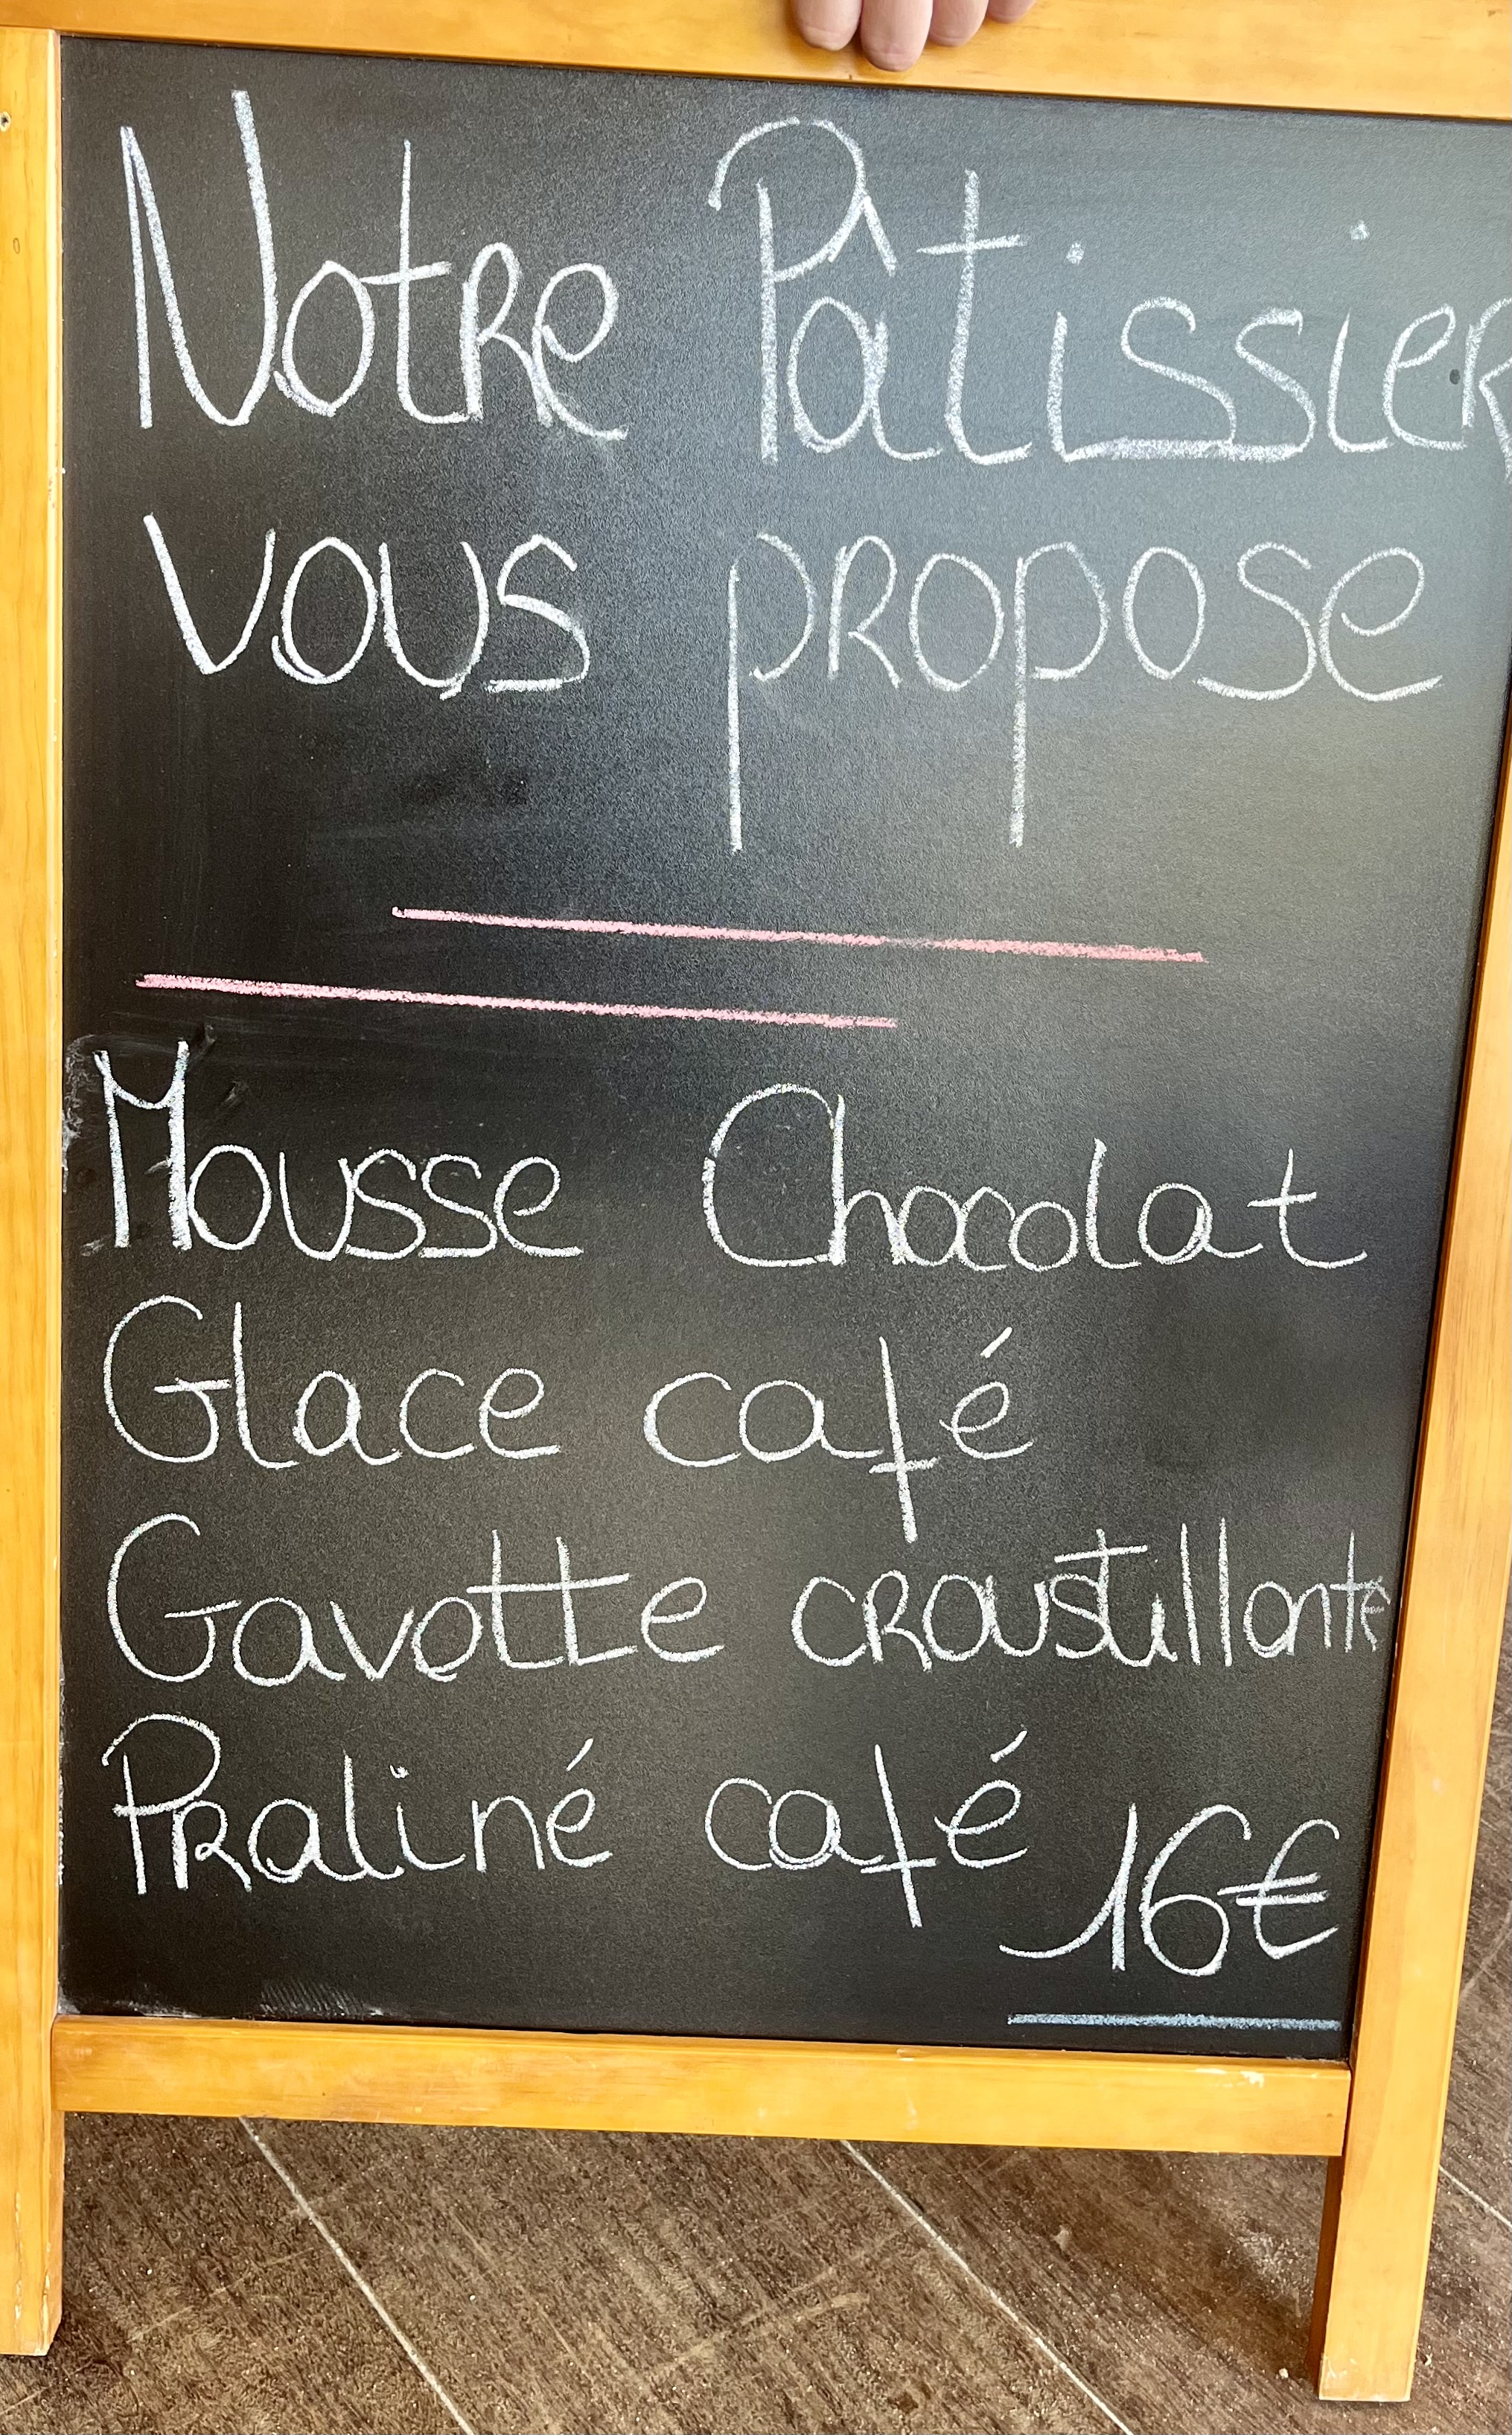 Notre Pâtissier
vous propose
Mousse Chocolat
Glace café
Gavotte croustillante
Praliné café
16€